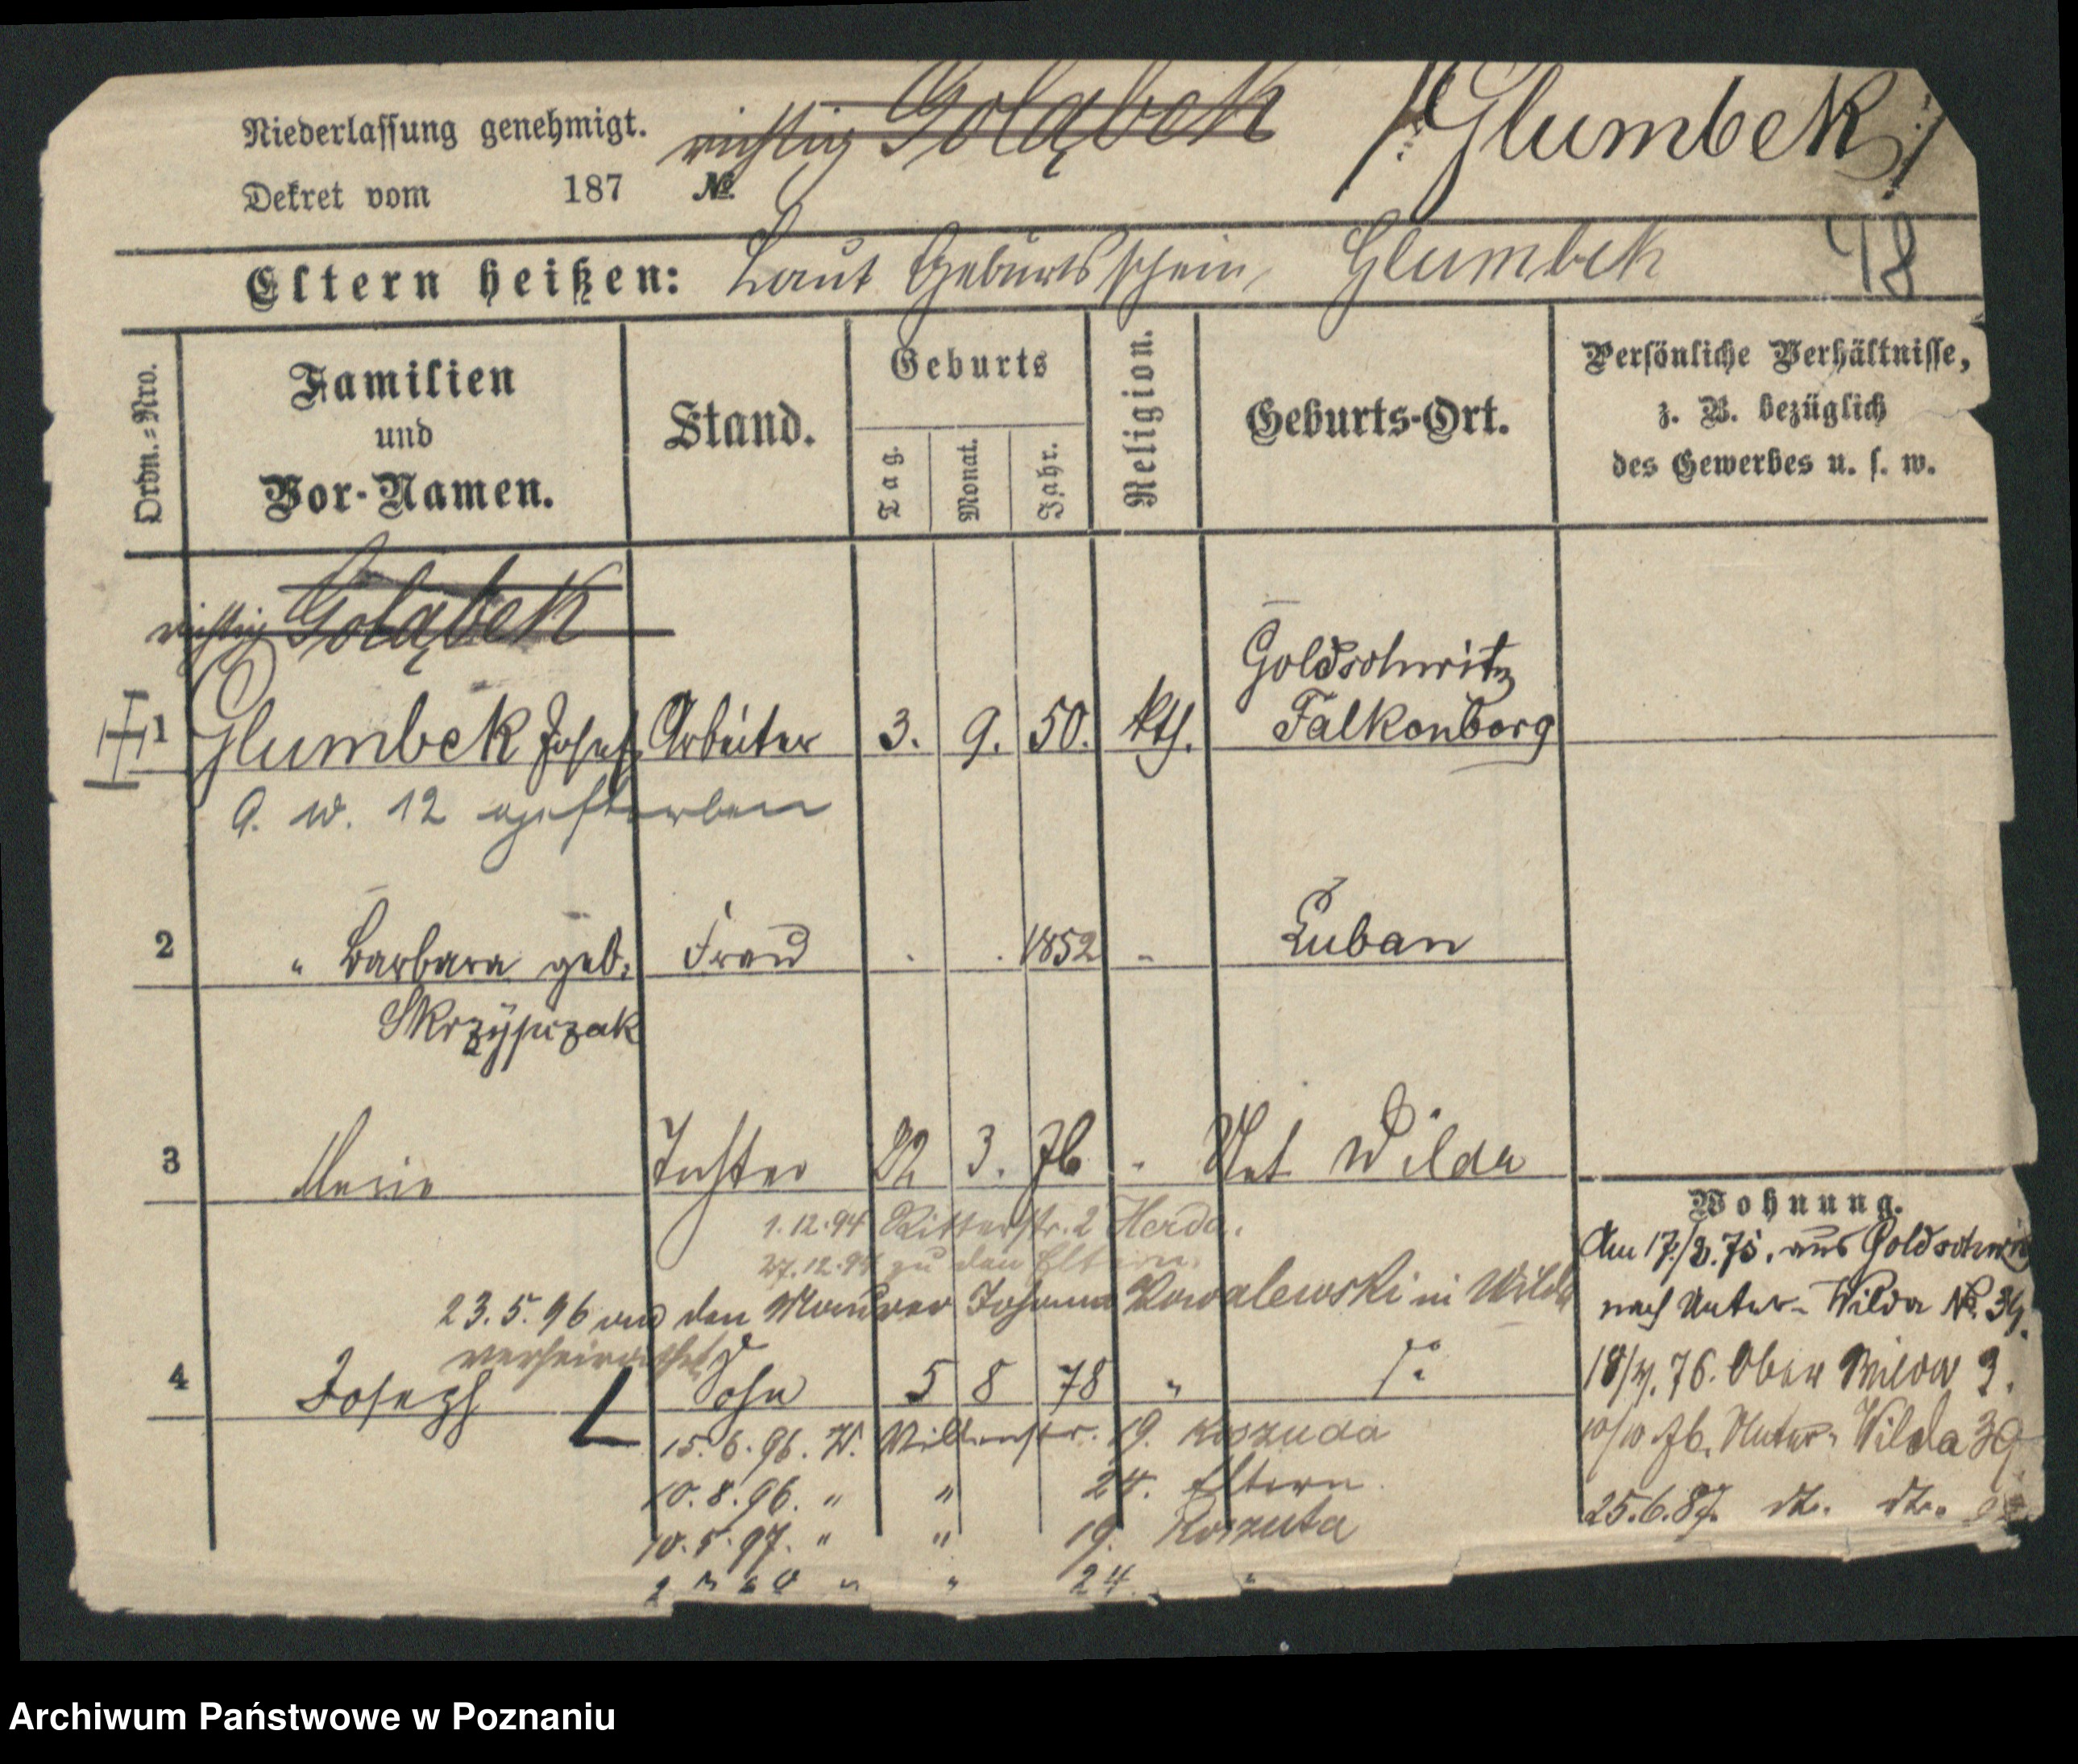 Niederlassung genehmigt. richtig Gołąbek /: Glumbek :/
Dekret vom 187 №
Eltern heißen: Laut Geburtsschein, Glumbek 98
Ordn.-Nro.
Familien und Vor-Namen.
Stand.
Geburts
Tag. Monat. Jahr.
Religion.
Geburts-Ort.
Persönliche Verhältnisse,
z. B. bezüglich
des Gewerbes u. s. w.
richtig Gołąbek
1 Glumbek Josef Arbeiter 3. 9. 50. kth. Goldschwitz
Falkenberg
9. 10. 12 gestorben
2 " Barbara geb. Frau 1852 " Luban
Skrzypczak
3 Marie Tochter 22 3. 76 " Unt Wilda
1.12.94 Ritterstr. 2
27.12.94 zu den Eltern.
23.5.96 den Maurer Johann Kowalewski in Wilda
verheirathet
4 Joseph Sohn 5 8 78 "
15.6.96. W. 19. Koszuda
10.8.96. " " 24. Eltern
10.5.97. " " 19. Koszuta
" " 24. "
Wohnung.
Am aus
nach Unter-Wilda No. 39.
76. Ober Wilda 3.
10/10 76. Unter-Wilda 39
25.6.87. dto. dto.
Archiwum Państwowe w Poznaniu